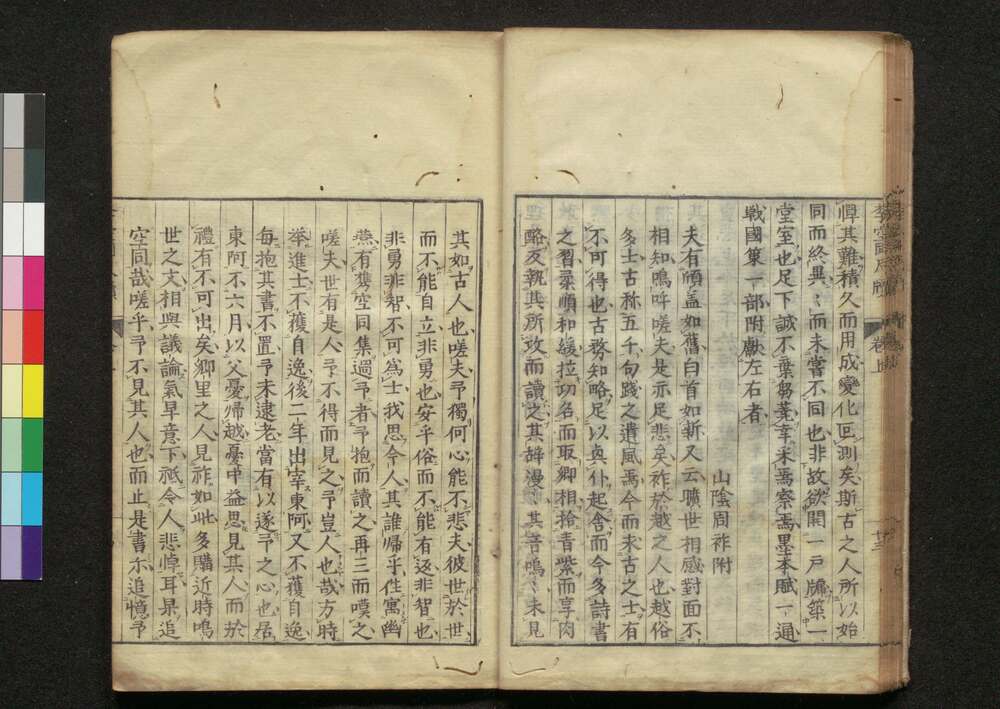 憚其難積久而用成變化叵測矣斯古之人所以始
同而終異〻而未嘗不同也非故欲開一戶牖築一
堂室也足下誠不棄芻蕘幸末焉察焉墨本賦一通
戰國策一部附獻左右者
山陰周祚附
夫有傾盖如舊白首如新又云曠世相感對面不
相知嗚呼嗟夫是亦足悲矣祚於越之人也越俗
多士古称五千句踐之遺風焉今而求古之士有
不可得也古務知略足以與仆起舎而今多詩書
之習柔順和緩拉功名而取卿相拾青紫而享肉
略及執其所攻而讀之其辭漫〻其音嗚〻未見
其如古人也嗟夫予獨何心能不悲夫彼世於世
而不能自立非勇也安乎俗而不能有返非智也
非勇非智不可爲士我思今人其誰歸乎徃寓幽
燕有携空同集過予者予抱而讀之再三而嘆之
嗟夫世有是人予不得而見之予豈人也哉方時
举進士不獲自逸後二年出宰東阿又不獲自逸
每抱其書不置予未逮老當有以遂予之心也居
東阿不六月以父憂歸越憂中益思見其人而於
禮有不可出矣鄉里之人見祚如此多購近時鳴
世之文相與議論氣早意下祇令人悲悼耳杲追
空同哉嗟乎予不見其人也而止是書示追憶予